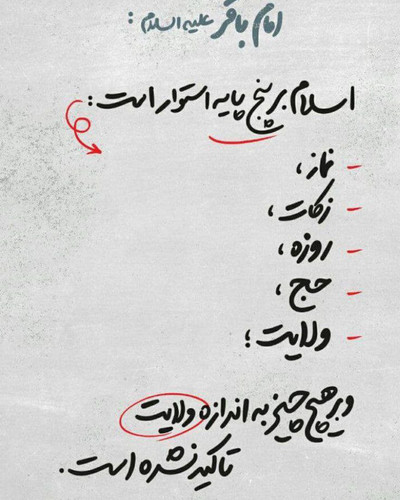 امام باقر علیه السلام :
اسلام بر پنج پایه استوار است :
- نماز ،
- زکات ،
- روزه ،
- حج ،
- ولایت ؛
و بر هیچ چیز به اندازه ولایت
تاکید نشده است .